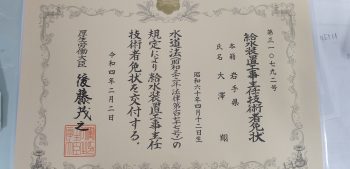 第三一〇七九二号
給水装置工事主任技術者免状
本籍 岩手県
氏名 大澤 翔
昭和六十年四月十二日生
水道法(昭和三十二年法律第百七十七号)の
規定により給水装置工事主任
技術者免状を交付する。
令和四年二月二日
厚生労働大臣 後藤茂之